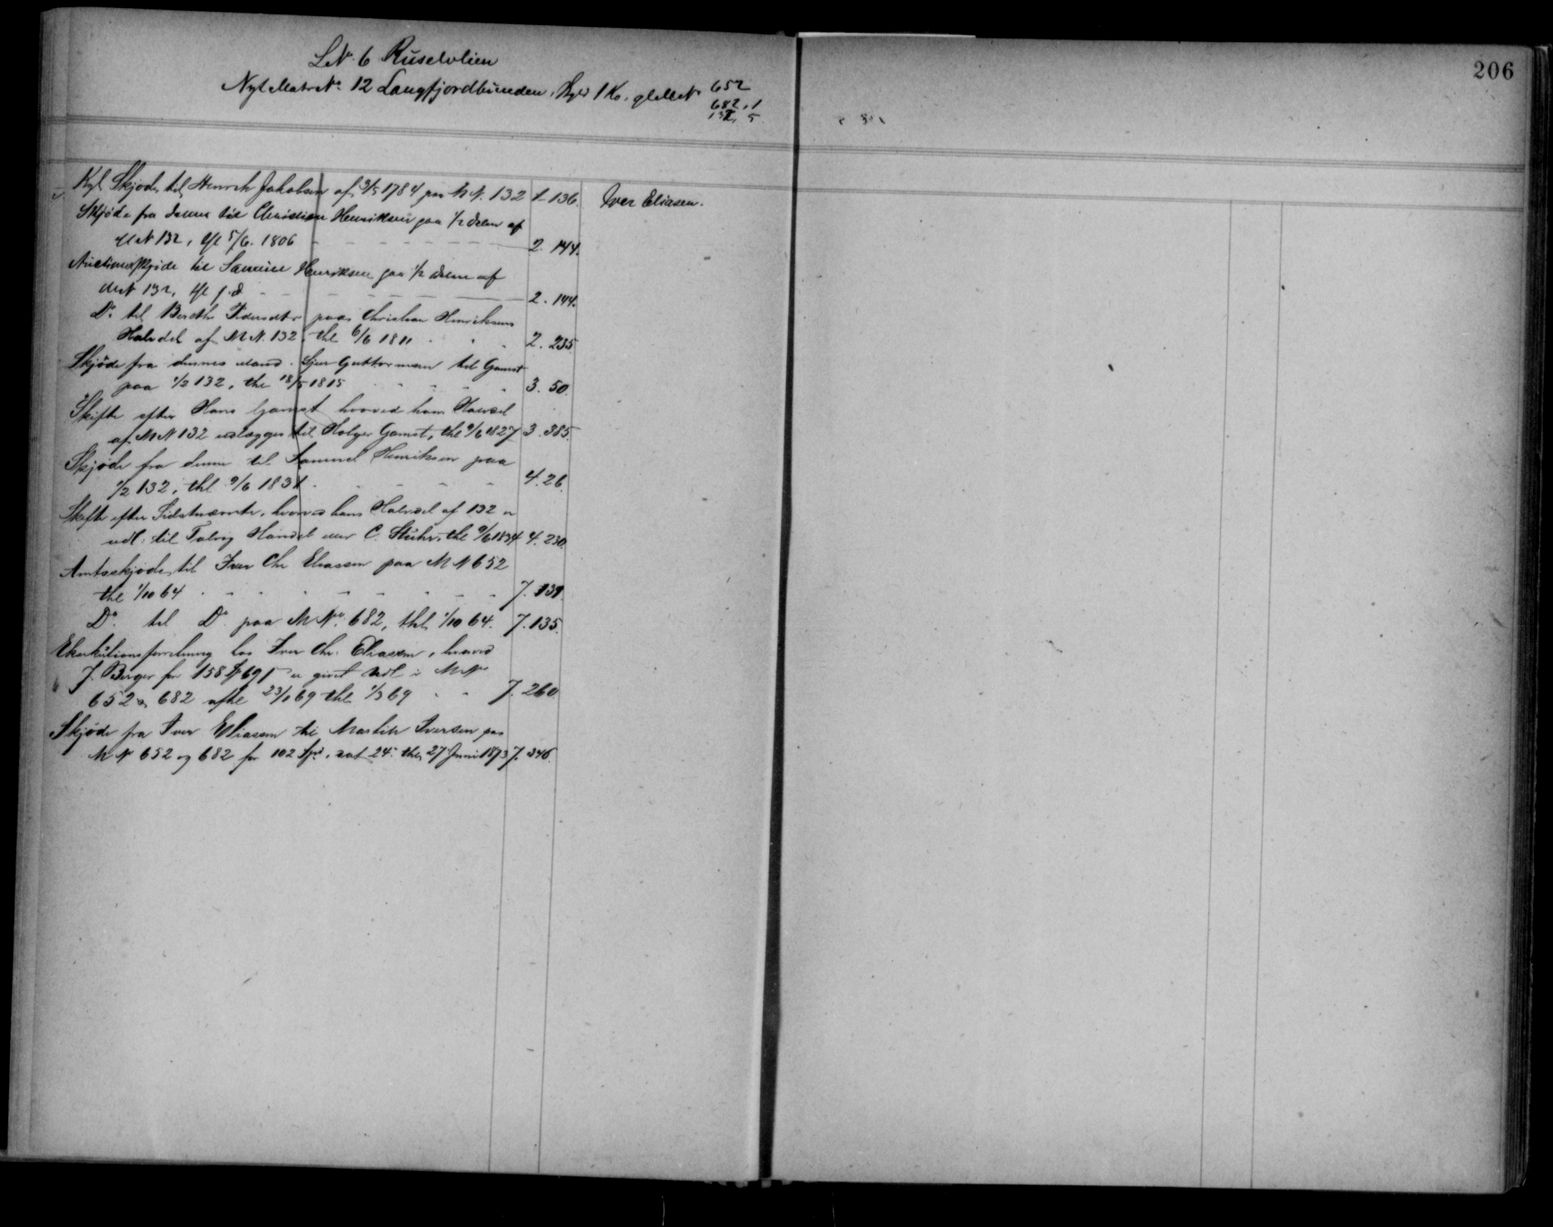 LN. 6 Ruselvlien
Nyt Matr No. 12 Langfjordbunden, Skyld 1 Ko. gl MN 652
682, 1
132, 5
206
Kgl Skjøde til Henrik Jakobsen af 3/5 1784 paa MN. 132 1. 136. Iver Eliasen.
Skjøde fra denne til Christian Henriksen paa 1/2 delen af
MN 132, thl 5/6. 1806 2. 144.
Auctionsskjøde til Samuel Henriksen paa 1/2 delen af
MN 132, thl s. d 2. 144.
Do. til Berethe Pedersdtr paa Christian Henriksens
Halvdel af MN. 132, thl 6/6 1811 2. 235.
Skjøde fra dennes Mand Guttormsen til Gamst
paa 1/2 132, thl 18/5 1815 3. 50.
Skifte efter Hans Gamst hvorved hans Halvdel
af MN 132 udlægges til Holger Gamst, thl 9/6 1827 3. 385.
Skjøde fra denne til Samuel Henriksen paa
1/2 132, thl 9/6 1831 4. 26.
Skifte efter Sidstnævnte, hvorved hans Halvdel af 132 er
udl. til Talvig Handel C. Stuhr, thl 9/6 1834 4. 230.
Amtsskjøde til Iver Chr Eliassen paa MN 652
thl 1/10 64 7. 131.
Do. til Do paa MNo. 682, thl 1/10 64. 7. 135.
Eksekutionsforretning hos Iver Chr. Eliassen, hvorved
J. Buger for 158 er givet Udl i MNo
652 & 682 afh 23/1 69 thl 1/3 69 7. 260
Skjøde fra Iver Eliassen til Mathis Iversen paa
MN 652 og 682 for 102 Spd, dat 24. thl. 27 Juni 1873 7. 346.